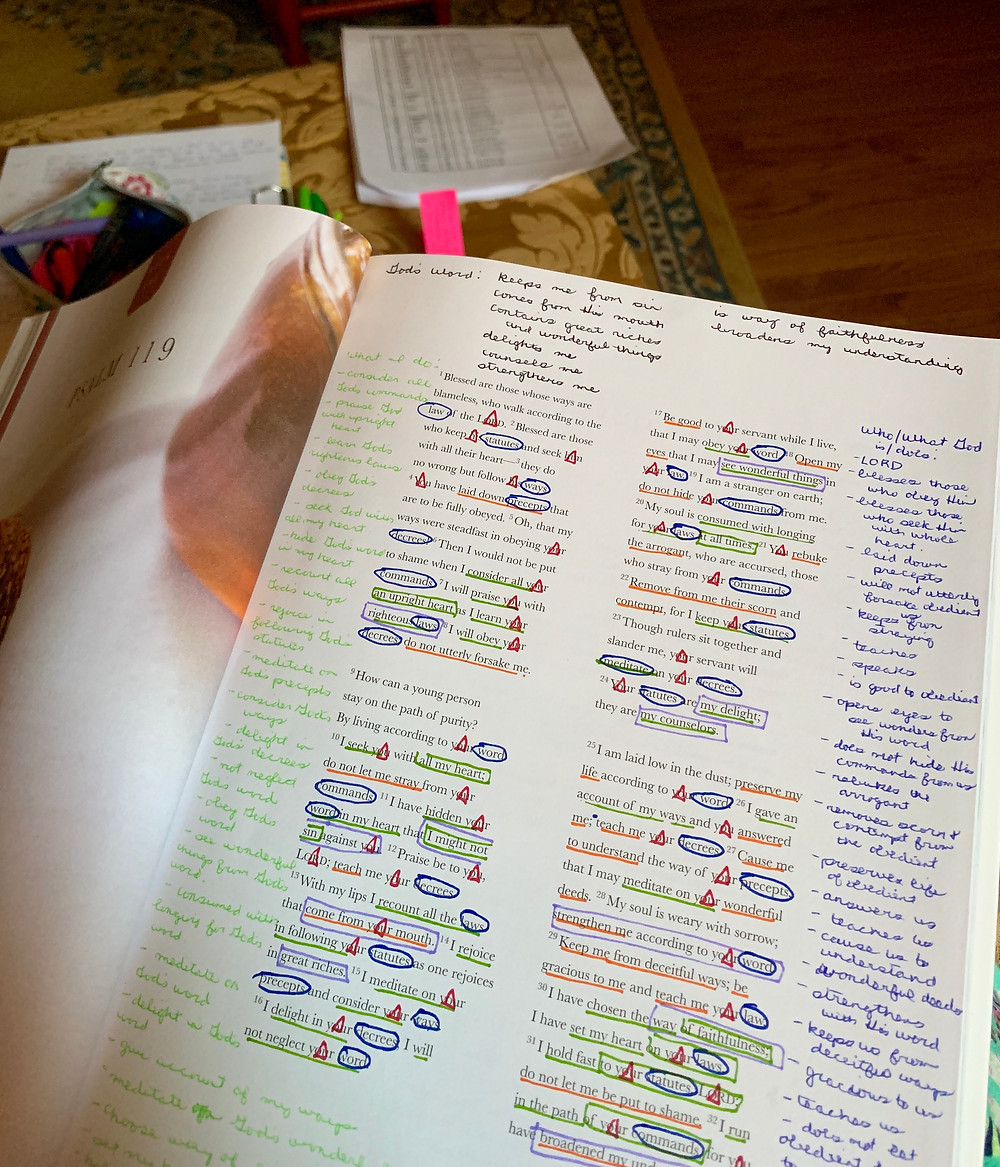 PSALM 119
God's Word: keeps me from sin
comes from His mouth
contains great riches
and wonderful things
delights me
counsels me
strengthens me
is way of faithfulness
broadens my understanding
What I do:
- consider all
God's commands
- praise God
with upright
heart
- learn God's
righteous laws
- obey God's
decrees
- seek God with
all my heart
- hide God's word
in my heart
- recount all
God's ways
- rejoice in
following God's
statutes
- meditate on
God's precepts
- consider God's
ways
- delight in
God's decrees
- not neglect
God's word
- obey God's
word
- see wonderful
things from God's
word
- consumed with
longing for God's
word
- meditate on
God's word
- delight in God's
word
- give account of my ways
- meditate on God's wonderful
- choose way of
1 Blessed are those whose ways are
blameless, who walk according to the
law of the LORD. 2 Blessed are those
who keep his statutes and seek him
with all their heart—3 they do
no wrong but follow his ways.
4 You have laid down precepts that
are to be fully obeyed. 5 Oh, that my
ways were steadfast in obeying your
decrees! 6 Then I would not be put
to shame when I consider all your
commands. 7 I will praise you with
an upright heart as I learn your
righteous laws. 8 I will obey your
decrees; do not utterly forsake me.
9 How can a young person
stay on the path of purity?
By living according to your word.
10 I seek you with all my heart;
do not let me stray from your
commands. 11 I have hidden your
word in my heart that I might not
sin against you. 12 Praise be to you,
LORD; teach me your decrees.
13 With my lips I recount all the laws
that come from your mouth. 14 I rejoice
in following your statutes as one rejoices
in great riches. 15 I meditate on your
precepts and consider your ways.
16 I delight in your decrees; I will
not neglect your word.
17 Be good to your servant while I live,
that I may obey your word. 18 Open my
eyes that I may see wonderful things in
your law. 19 I am a stranger on earth;
do not hide your commands from me.
20 My soul is consumed with longing
for your laws at all times. 21 You rebuke
the arrogant, who are accursed, those
who stray from your commands.
22 Remove from me their scorn and
contempt, for I keep your statutes.
23 Though rulers sit together and
slander me, your servant will
meditate on your decrees.
24 Your statutes are my delight;
they are my counselors.
25 I am laid low in the dust; preserve my
life according to your word. 26 I gave an
account of my ways and you answered
me; teach me your decrees. 27 Cause me
to understand the way of your precepts,
that I may meditate on your wonderful
deeds. 28 My soul is weary with sorrow;
strengthen me according to your word.
29 Keep me from deceitful ways; be
gracious to me and teach me your law.
30 I have chosen the way of faithfulness;
I have set my heart on your laws.
31 I hold fast to your statutes, LORD;
do not let me be put to shame. 32 I run
in the path of your commands, for you
have broadened my
who/what God
is/does:
- LORD
- blesses those
who obey Him
- blesses those
who seek Him
with whole
heart
- laid down
precepts
- will not utterly
forsake obedient
- keeps from
straying
- teaches
- speaks
- is good to obedient
- opens eyes to
see wonders from
His word
- does not hide His
commands from us
- rebukes the
arrogant
- removes scorn &
contempt from
the obedient
- preserves life
of obedient
- answers us
- teaches us
- cause us to
understand
- wonderful deeds
- strengthens
with His word
- keeps us from
deceitful ways
- gracious to us
- teaches us
- does not let
obedient